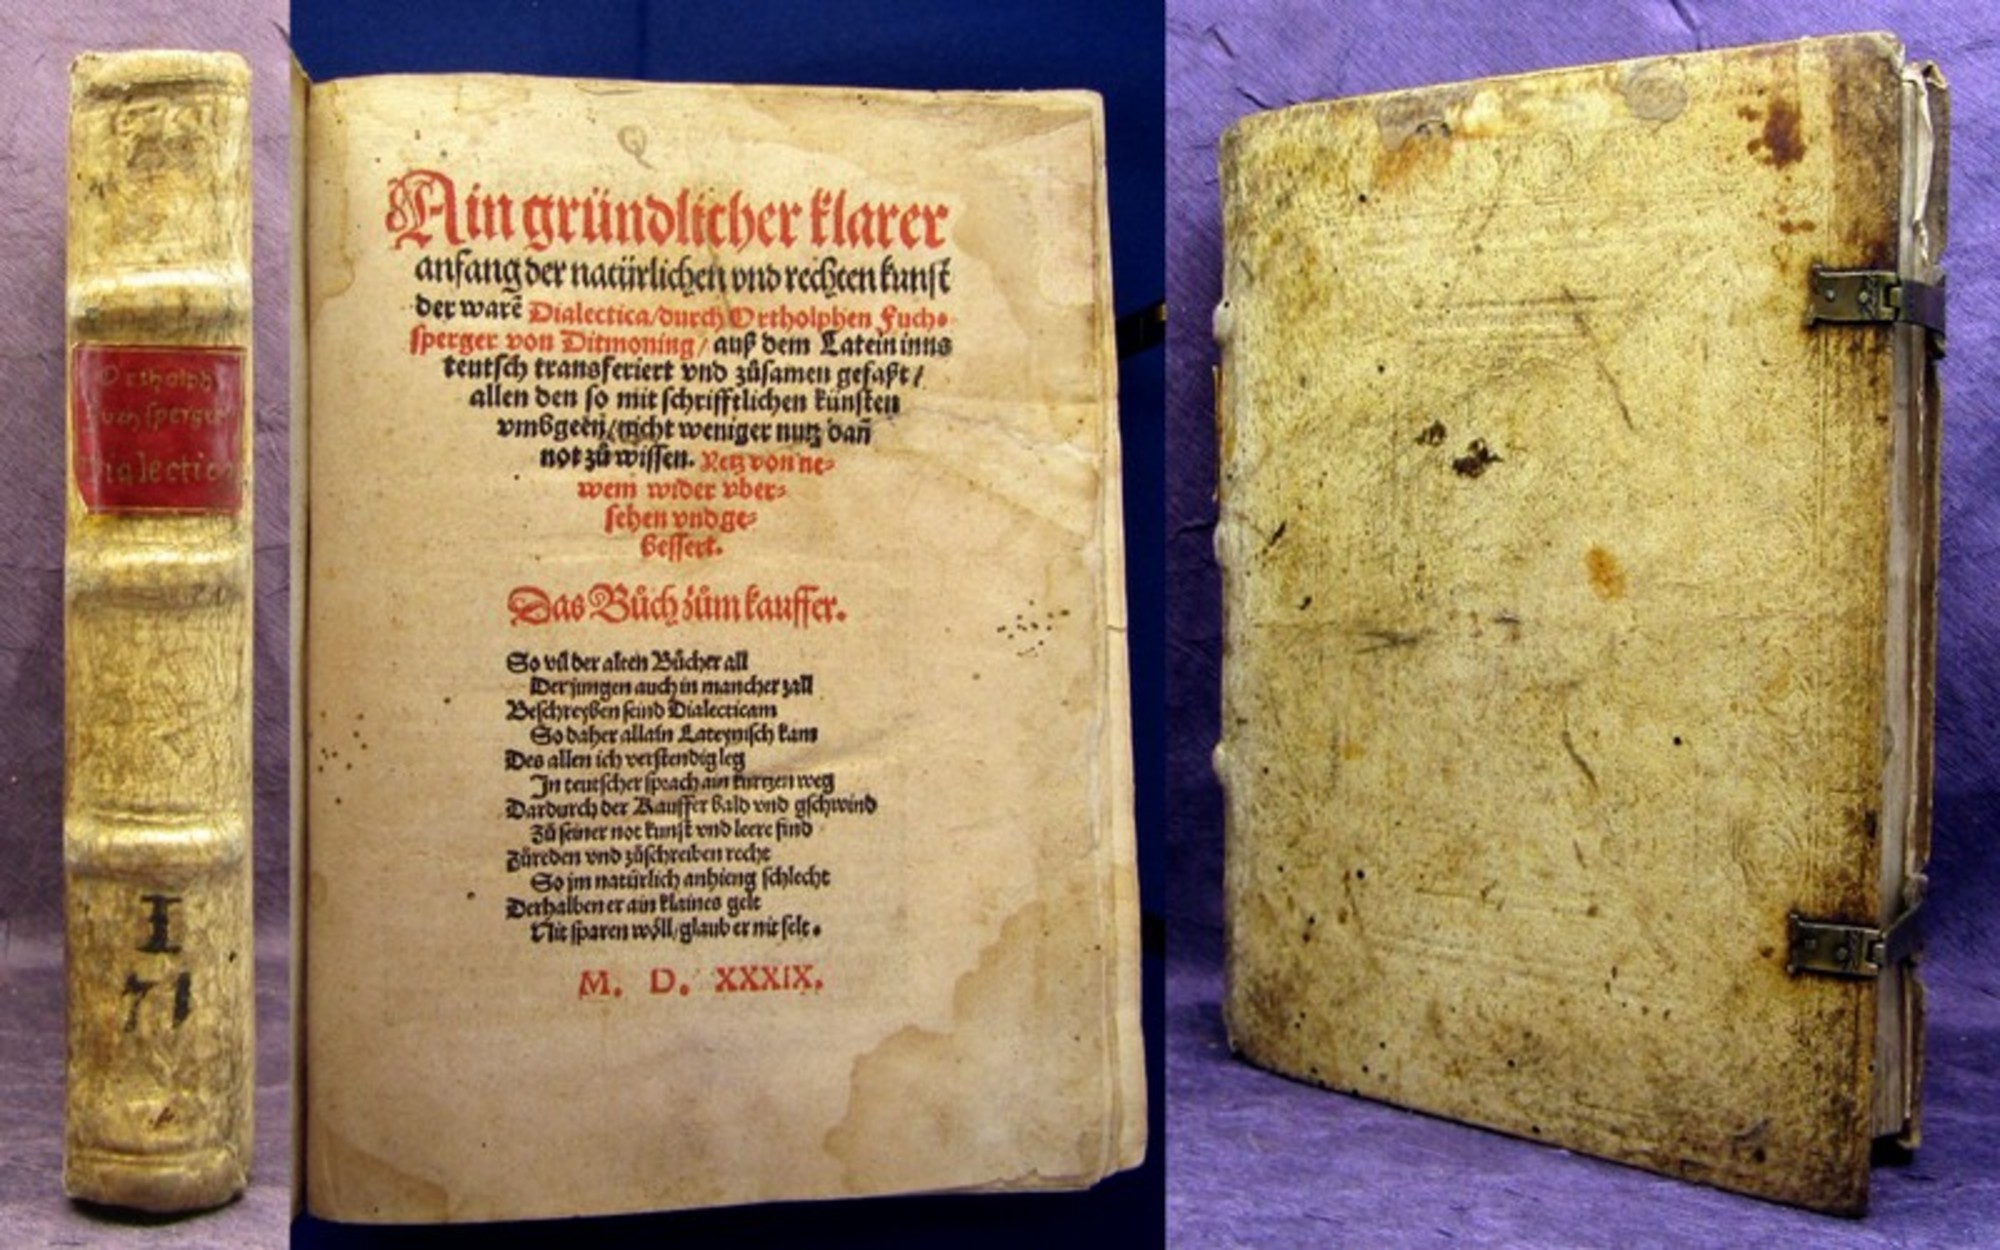 Ortholph
Fuchsperger
Dialectica
I
71
Q
Ain gründlicher klarer
anfang der natürlichen vnd rechten kunst
der warẽ Dialectica/durch Ortholphen Fuch⸗
sperger von Ditmoning/ auß dem Latein inns
teutsch transferiert vnd zůsamen gefaßt/
allen den so mit schrifftlichen künsten
vmbgeen/nicht weniger nutz dañ
not zů wissen. Yetz von ne⸗
wem wider vber⸗
sehen vnd ge⸗
bessert.
Das Bůch zům kauffer.
So vil der alten Bücher all
Der jungen auch in mancher zall
Beschreyben seind Dialecticam
So daher allain Lateynisch kam
Des allen ich verstendig leg
In teutscher sprach ain kurtzen weg
Dardurch der Kauffer bald vnd gschwind
Zů seiner not kunst vnd leere find
Zůreden vnd zůschreiben recht
So jm natürlich anhieng schlecht
Derhalben er ain klaines gelt
Nit sparen wöll/glaub er nit felt.
M. D. XXXIX.